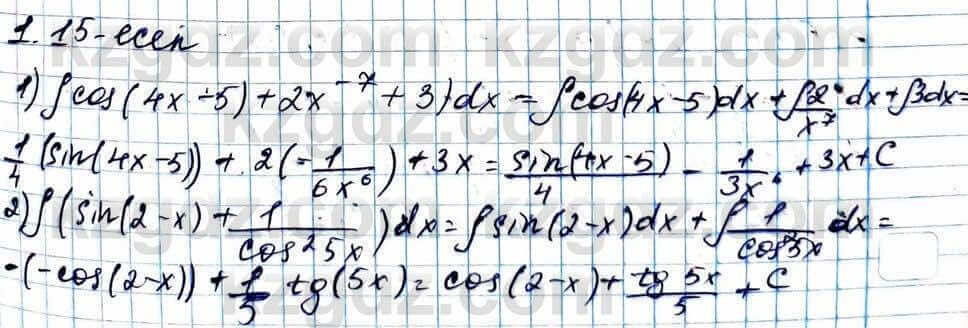 1.15-есеп
1) ∫cos(4x-5)+2x^-7+3)dx = ∫cos(4x-5)dx + ∫2/x^7 dx + ∫3dx =
1/4 (sin(4x-5)) + 2(-1/6x^6) + 3x = sin(4x-5)/4 - 1/3x^6 + 3x + C
2) ∫(sin(2-x) + 1/cos²5x)dx = ∫sin(2-x)dx + ∫1/cos²5x dx =
-(-cos(2-x)) + 1/5 tg(5x) = cos(2-x) + tg 5x/5 + C